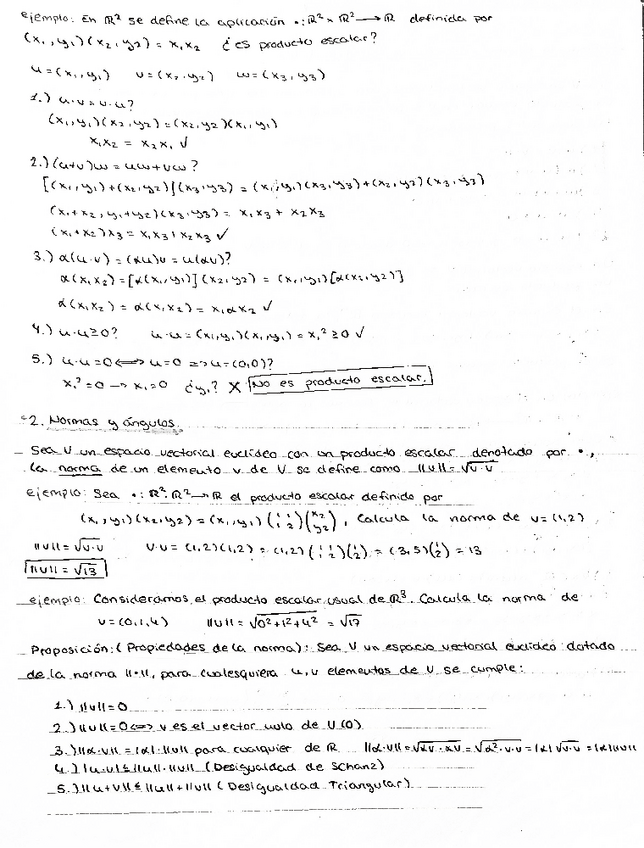 ejemplo: En ℝ² se define la aplicación •: ℝ² × ℝ² → ℝ definida por
(x₁, y₁)(x₂, y₂) = x₁x₂ ¿es producto escalar?
u = (x₁, y₁) v = (x₂, y₂) w = (x₃, y₃)
1.) u·v = v·u?
(x₁, y₁)(x₂, y₂) = (x₂, y₂)(x₁, y₁)
x₁x₂ = x₂x₁ ✓
2.) (u+v)w = uw + vw?
[(x₁, y₁) + (x₂, y₂)](x₃, y₃) = (x₁, y₁)(x₃, y₃) + (x₂, y₂)(x₃, y₃)
(x₁+x₂, y₁+y₂)(x₃, y₃) = x₁x₃ + x₂x₃
(x₁+x₂)x₃ = x₁x₃ + x₂x₃ ✓
3.) α(u·v) = (αu)v = u(αv)?
α(x₁x₂) = [α(x₁, y₁)](x₂, y₂) = (x₁, y₁)[α(x₂, y₂)]
α(x₁x₂) = α(x₁x₂) = x₁αx₂ ✓
4.) u·u ≥ 0? u·u = (x₁, y₁)(x₁, y₁) = x₁² ≥ 0 ✓
5.) u·u = 0 ⟺ u = 0 ⇒ u = (0,0)?
x₁² = 0 → x₁ = 0 ¿y₁? X No es producto escalar.
2. Normas y ángulos.
Sea V un espacio vectorial euclídeo con un producto escalar denotado por •,
la norma de un elemento v de V se define como ||v|| = √v·v
ejemplo: Sea •: ℝ²·ℝ² → ℝ el producto escalar definido por
(x₁, y₁)(x₂, y₂) = (x₁, y₁) (1 1 / 1 2) (x₂ / y₂), Calcula la norma de v = (1,2)
||v|| = √v·v v·v = (1,2)(1,2) = (1,2) (1 1 / 1 2) (1 / 2) = (3,5) (1 / 2) = 13
||v|| = √13
ejemplo: Consideramos el producto escalar usual de ℝ³. Calcula la norma de
v = (0,1,4) ||v|| = √0²+1²+4² = √17
Proposición: (Propiedades de la norma): Sea V un espacio vectorial euclídeo dotado
de la norma ||•||, para cualesquiera u, v elementos de V se cumple:
1.) ||v|| = 0
2.) ||v|| = 0 ⟺ v es el vector nulo de V (0)
3.) ||α·v|| = |α|·||v|| para cualquier de ℝ ||α·v|| = √αv·αv = √α²·v·v = |α|√v·v = |α|||v||
4.) |u·v| ≤ ||u||·||v|| (Desigualdad de Schanz)
5.) ||u+v|| ≤ ||u|| + ||v|| (Desigualdad Triangular)